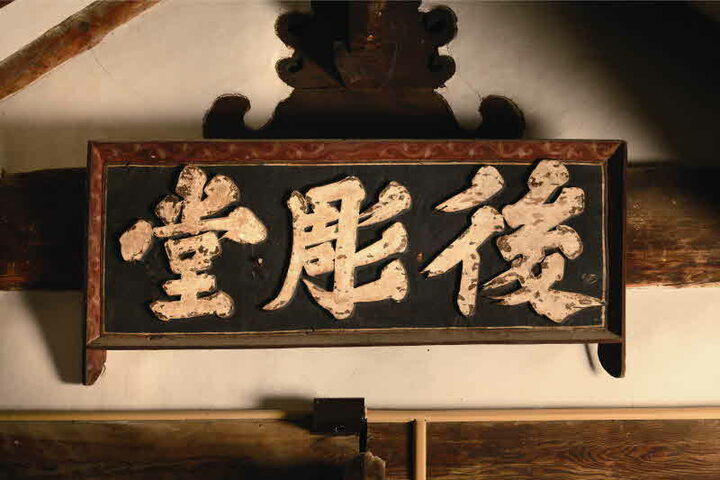 後彫堂